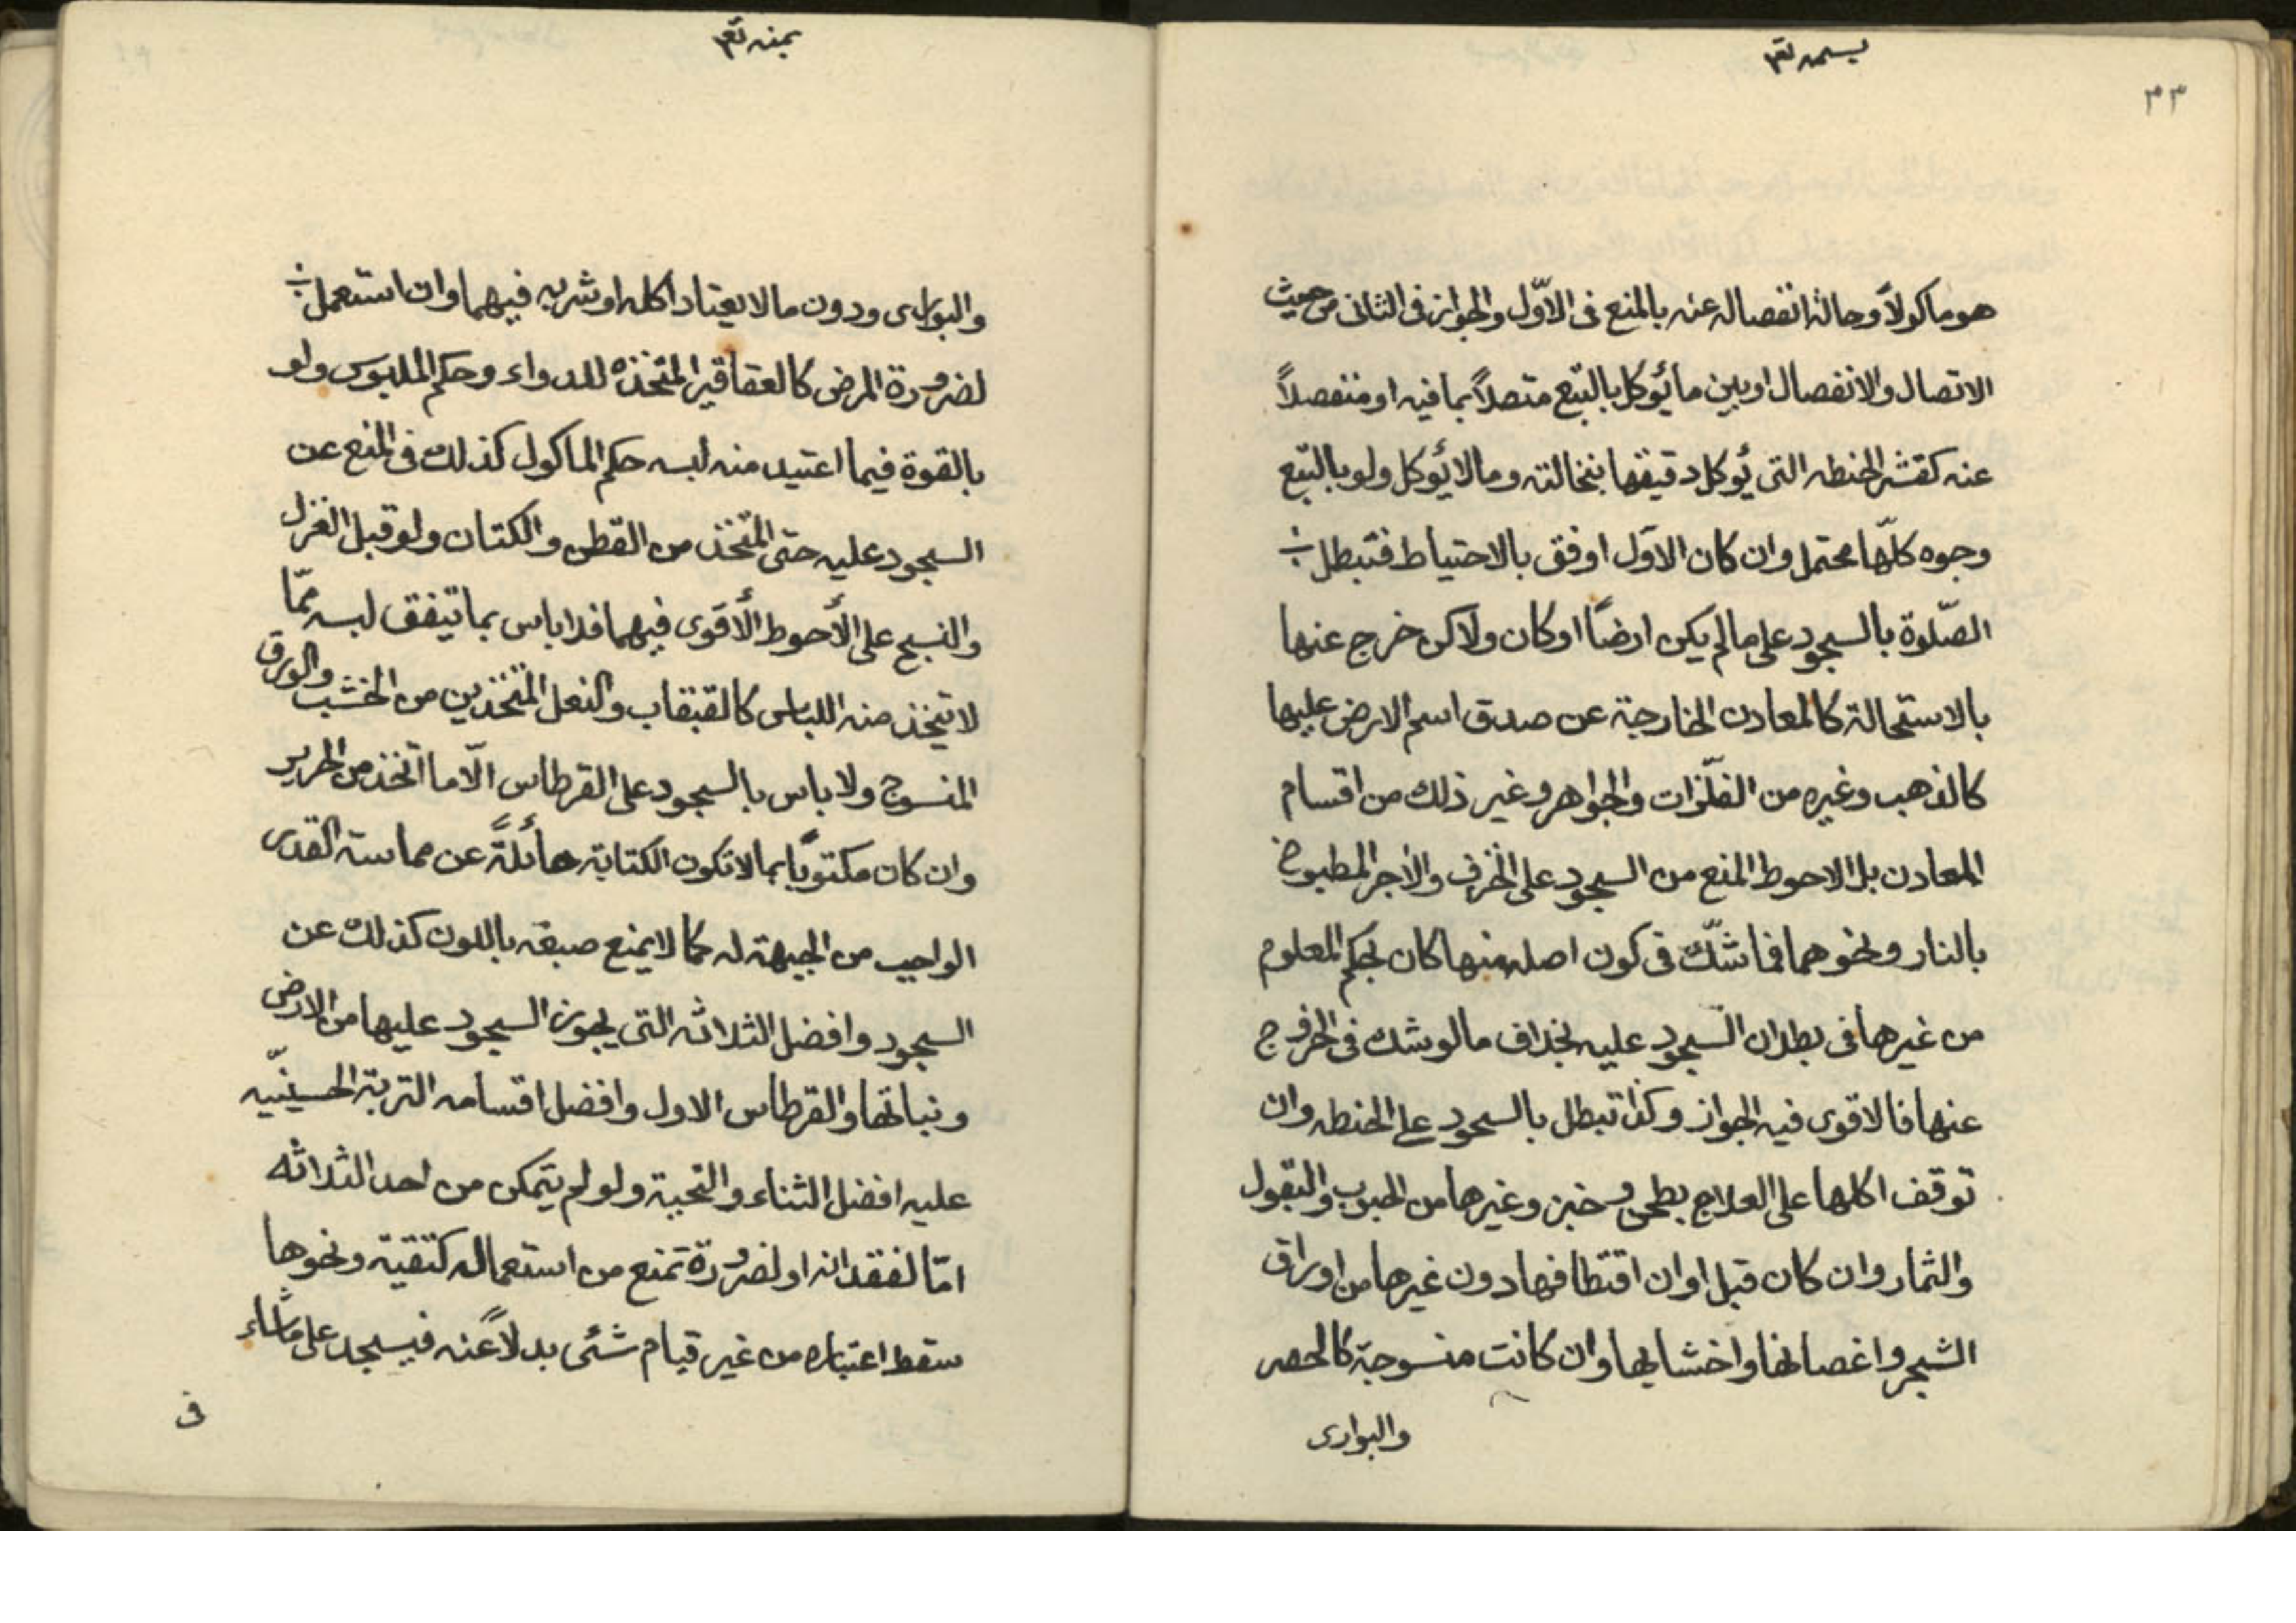 بسمه تعم
٣٣
هو ماكولاً وحالة انفصاله عنه بالمنع فى الاوّل والجواز فى الثانى من حيث
الاتصال والانفصال او بين ما يُوكل بالتبع متصلاً بما فيه او منفصلاً
عنه كقشر الحنطه التى يُوكل دقيقها بنخالته وما لا يُوكل ولو بالتبع
وجوه كلّها محتمل وان كان الاوّل اوفق بالاحتياط فتبطل
الصّلوة بالسجود على ما لم يكن ارضاً او كان ولاكن خرج عنها
بالاستحالة كالمعادن الخارجة عن صدق اسم الارض عليها
كالذهب وغيره من الفلّزات والجواهر وغير ذلك من اقسام
المعادن بل الاحوط المنع من السجود على الخزف والاجر المطبوخ
بالنار ونحوهما فما شكّ فى كون اصله منها كان بحكم المعلوم
من غيرها فى بطلان السّجود عليه بخلاف ما لو شك فى الخروج
عنها فالاقوى فيه الجواز وكذا تبطل بالسجود على الحنطه وان
توقف اكلها على العلاج بطحن وخبز وغيرها من الحبوب والبقول
والثمار وان كان قبل اوان اقتطافها دون غيرها من اوراق
الشجر واغصانها واخشابها وان كانت منسوجة كالحصر
والبوارى
بمنه تعم
والبوارى ودون ما لا يعتاد اكله او شربه فيهما وان استعمل
لضرورة المرض كالعقاقير المتخذه للدواء وحكم الملبوس ولو
بالقوة فيما اعتيد منه لبسه حكم الماكول كذلك فى المنع عن
السجود عليه حتى المتخذ من القطن والكتان ولو قبل الغزل
والنسج على الأحوط الأقوى فيهما فلا باس بما يتفق لبسه ممّا
لا يتخذ منه اللباس كالقبقاب والنعل المتخذين من الخشب والورق
المنسوج ولا باس بالسجود على القرطاس الّا ما اتخذ من الحرير
وان كان مكتوباً بما لا تكون الكتابة حائلةً عن مماسة القدر
الواجب من الجبهة له كما لا يمنع صبغه باللون كذلك عن
السجود وافضل الثلاثه التى يجوز السجود عليها من الارض
ونباتها والقرطاس الاول وافضل اقسامه التربة الحسينّيه
عليه افضل الثناء والتحية ولو لم يتمكن من احد الثلاثه
امّا لفقدانه او لضرورة تمنع من استعماله كتقية ونحوها
سقط اعتباره من غير قيام شئى بدلاً عنه فيسجد على ما شاء
فى